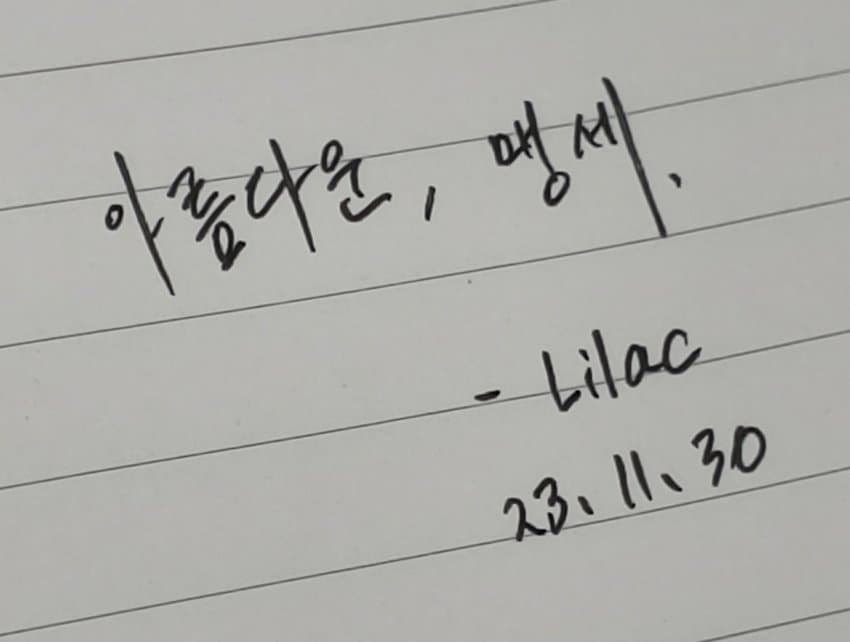 아름다운, 맹세.
- Lilac
23.11.30